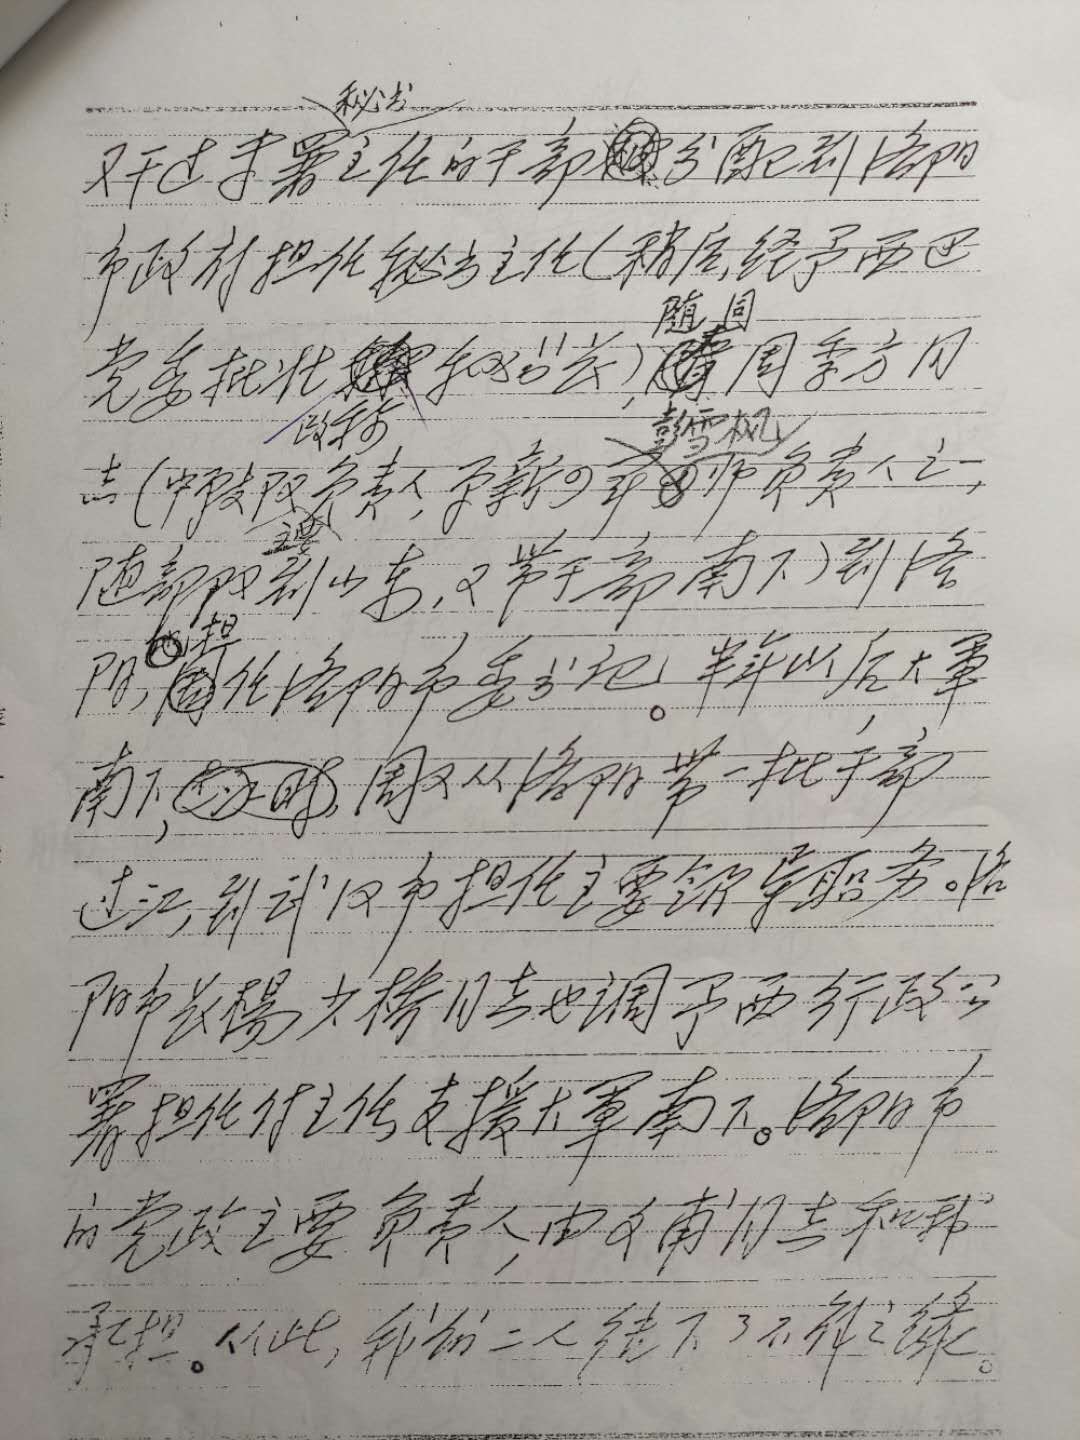 秘书
又干过专署主任的干部分配到洛阳
市政府担任秘书主任(稍后,经予西区
党委批准改称秘书长),随同周季方同
志(中改负责人,原新四军彭雪枫师主要负责人之一,
随部队到山东,又带干部南下)到洛
阳,他担任洛阳市委书记。半年以后,大军
南下,周又从洛阳带一批干部
过江,到武汉市担任主要领导职务。洛
阳市长杨少桥同志也调予西行政公
署担任付主任,支援大军南下。洛阳市
的党政主要负责人,由文甫同志和我
承担。从此,我们二人结下了不解之缘。